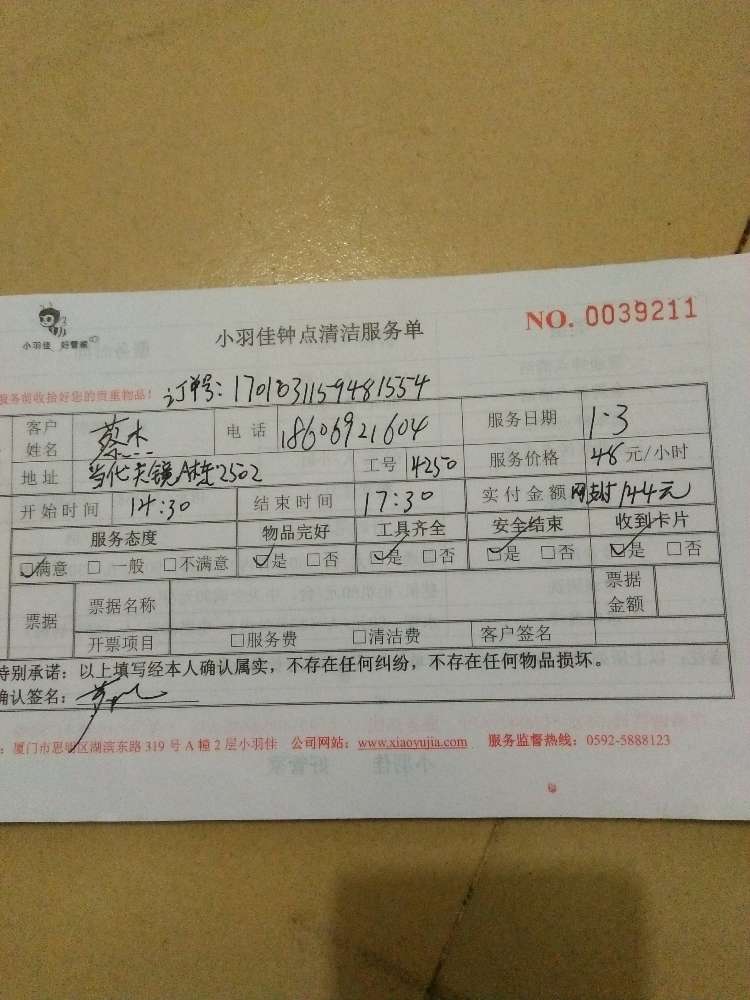 小羽佳 好管家
小羽佳钟点清洁服务单
NO. 0039211
服务前收拾好您的贵重物品! 订单号: 17010311594815554
客户姓名 蔡杰 电话 18606921604 服务日期 1.3
地址 当代天镜A栋2502 工号 4250 服务价格 48 元/小时
开始时间 14:30 结束时间 17:30 实付金额 网支付144元
服务态度 物品完好 工具齐全 安全结束 收到卡片
☑满意 □ 一般 □不满意 ☑是 □否 ☑是 □否 ☑是 □否 ☑是 □否
票据 票据名称 票据金额
开票项目 □服务费 □清洁费 客户签名
特别承诺：以上填写经本人确认属实，不存在任何纠纷，不存在任何物品损坏。
确认签名：
：厦门市思明区湖滨东路 319 号 A 幢 2 层小羽佳 公司网站：www.xiaoyujia.com 服务监督热线：0592-5888123